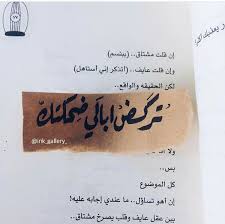 إن قلت مشتاق.. (ببتسم)
وإن قلت عايف.. (أتذكر إني أستاهل)
لكن الحقيقة والواقع..
تركض أبالي ضحكتك
@ink_gallery_
بس..
كل الموضوع
إن أهو تساؤل.. ما عندي إجابه عليه!
بين عقل عايف وقلب يصرخ مشتاق..